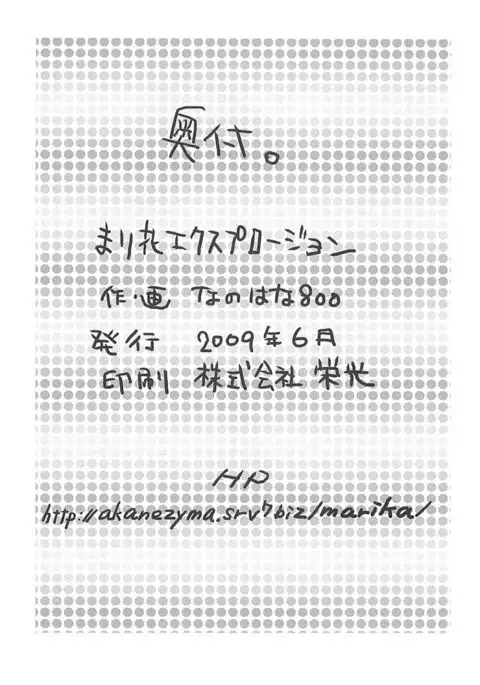 奥付。
まり花エクスプロージョン
作・画 なのはな800
発行 2009年6月
印刷 株式会社 栄光
HP
http://akanezyma.srv7.biz/marika/